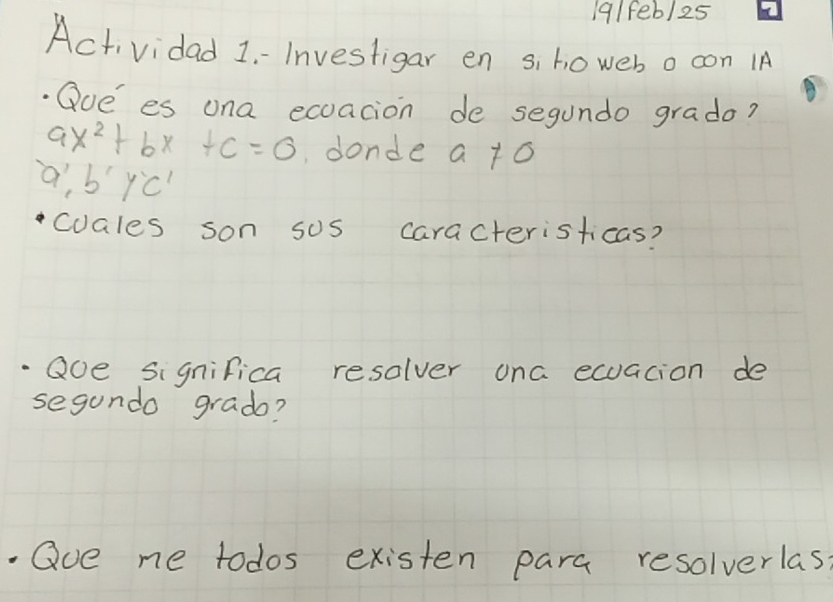 19/feb/25
Actividad 1.- Investigar en sitio web o con IA
• Qué es una ecuación de segundo grado?
ax² + bx + c = 0, donde a ≠ 0
'a', b' y 'c'
• Cuales son sus caracteristicas?
• Que significa resolver una ecuacion de
segundo grado?
• Que metodos existen para resolverlas?